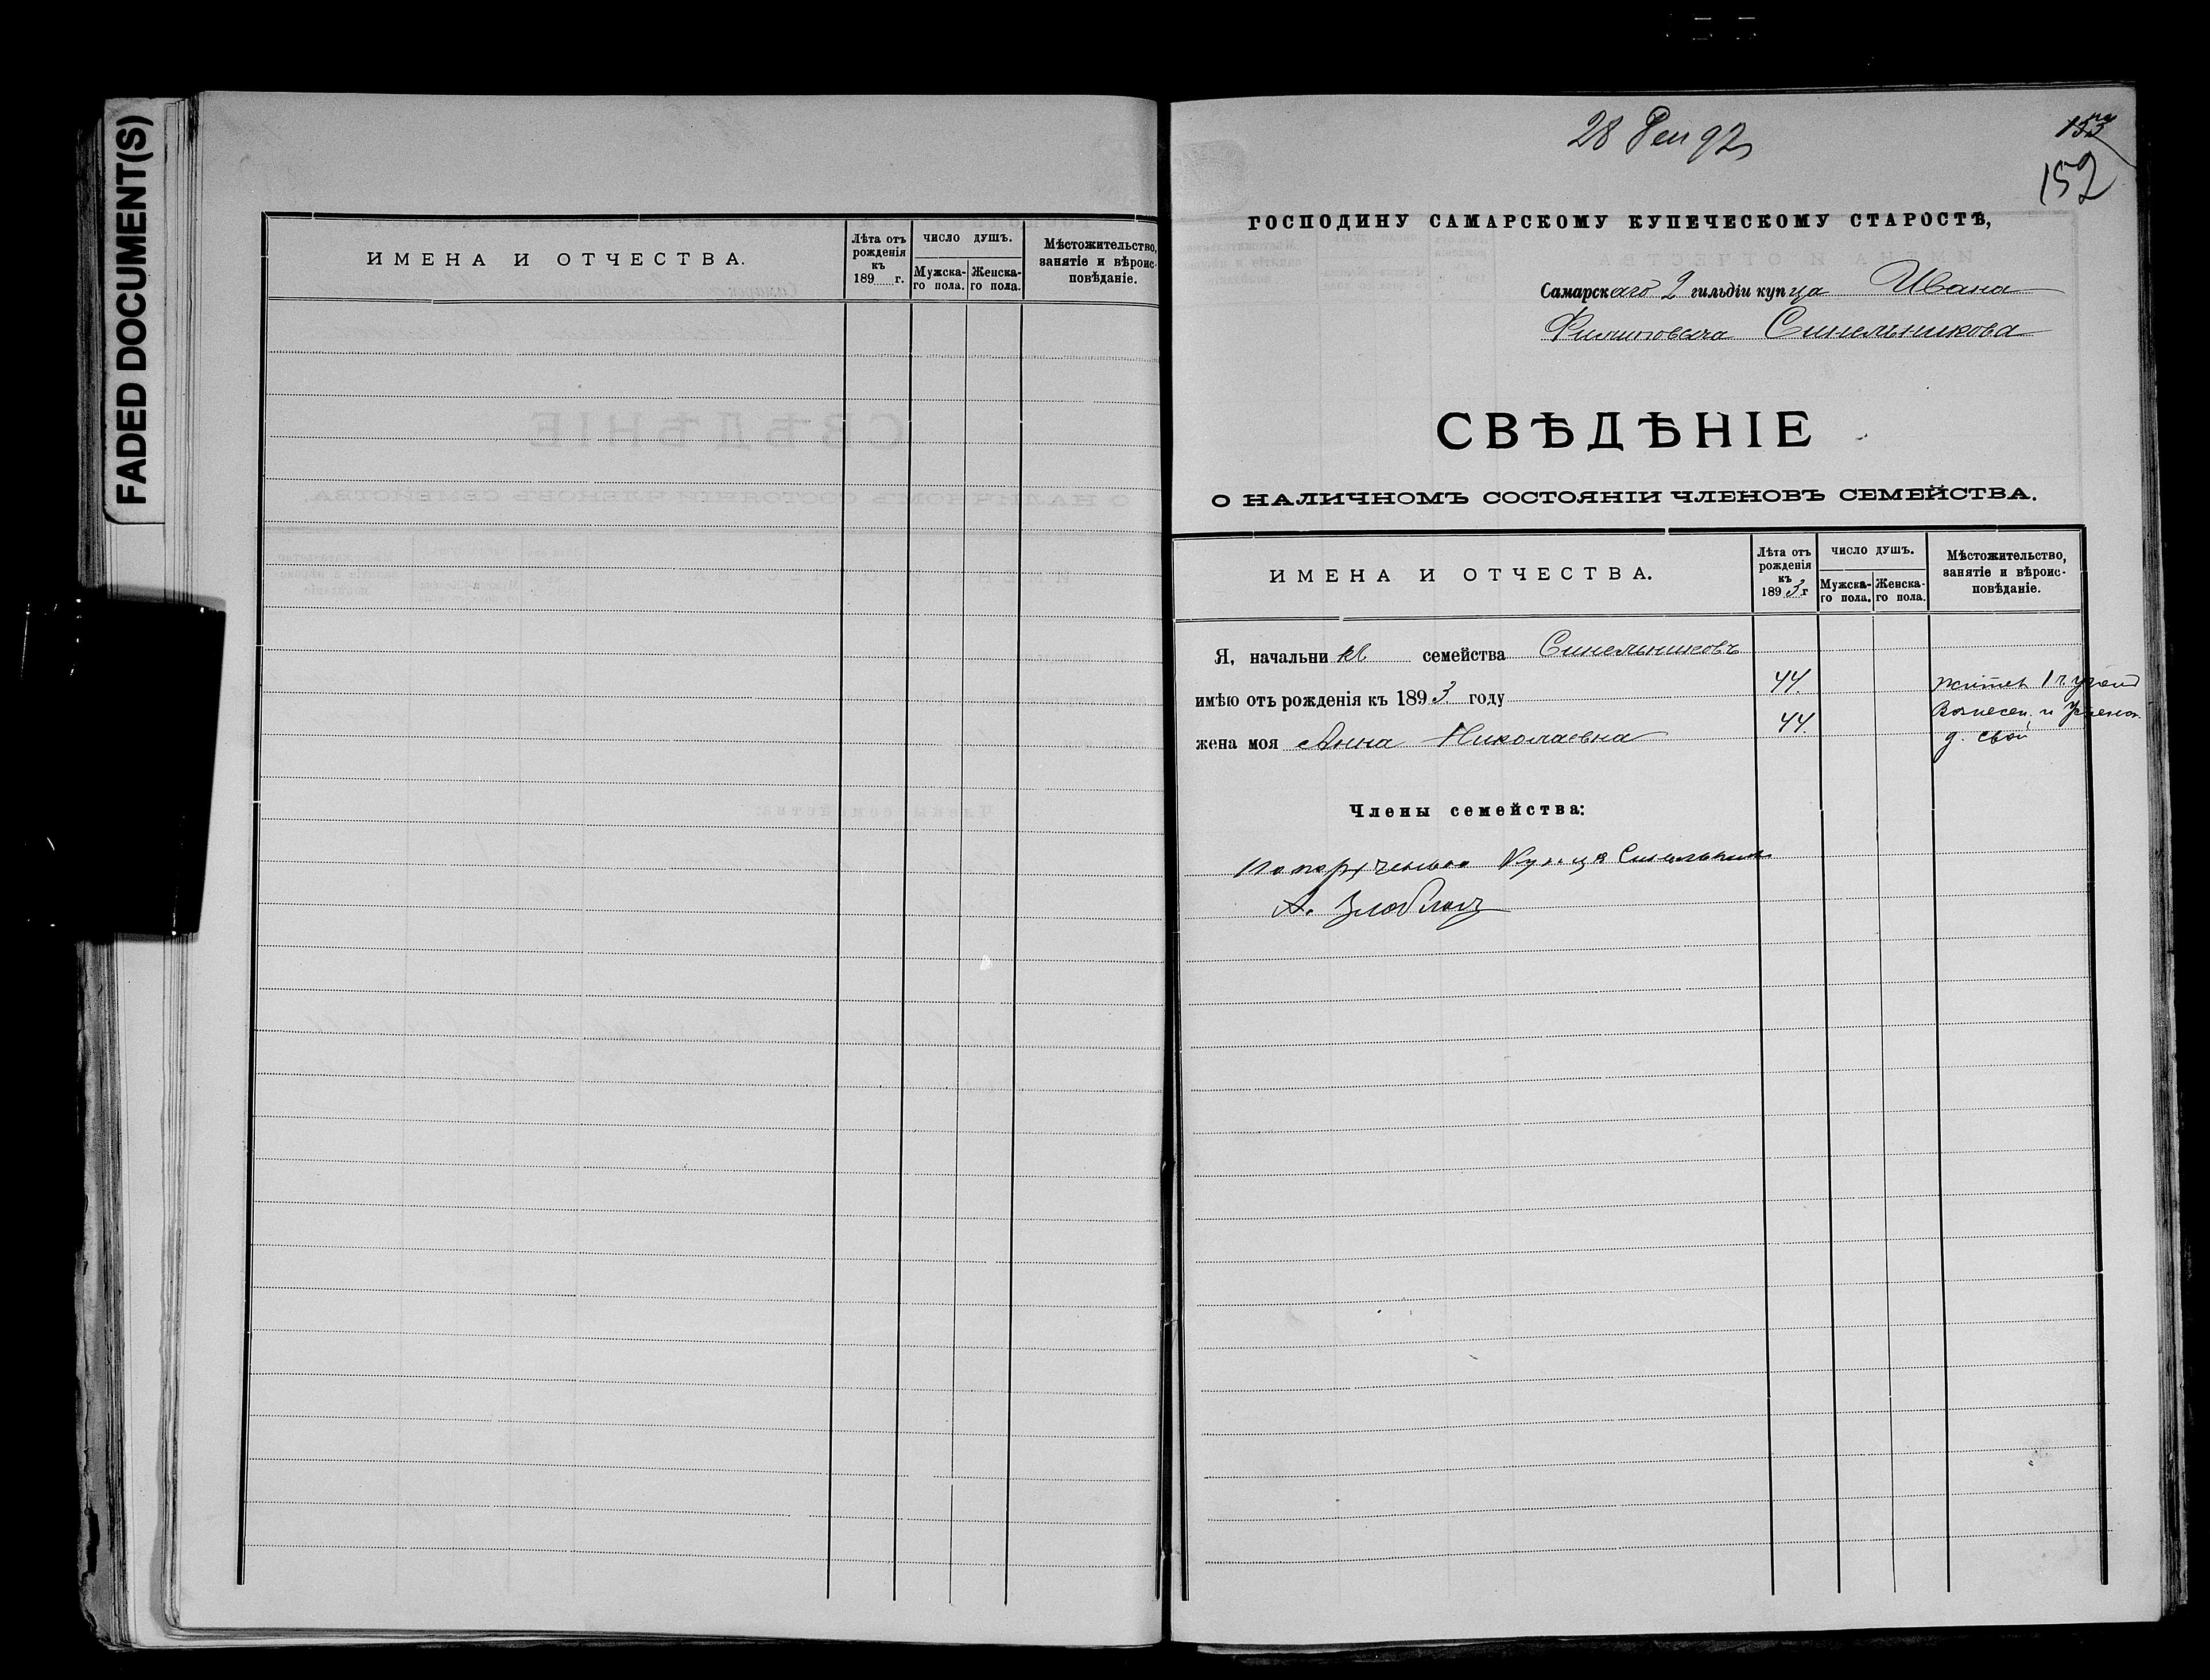 FADED DOCUMENT(S)
ИМЕНА И ОТЧЕСТВА.
Лѣта отъ рожденія къ 189 г.
ЧИСЛО ДУШЪ.
Мужска-го пола.
Женска-го пола.
Мѣстожительство, занятіе и вѣроис-повѣданіе.
28 92
152
ГОСПОДИНУ САМАРСКОМУ КУПЕЧЕСКОМУ СТАРОСТѢ,
Самарскаго 2 гильдіи купца Ивана
Филиповича Синельникова
СВѢДѢНІЕ
О НАЛИЧНОМЪ СОСТОЯНІИ ЧЛЕНОВЪ СЕМЕЙСТВА.
ИМЕНА И ОТЧЕСТВА.
Лѣта отъ рожденія къ 1893 г
ЧИСЛО ДУШЪ.
Мужска-го пола.
Женска-го пола.
Мѣстожительство, занятіе и вѣроис-повѣданіе.
Я, начальникъ семейства Синельниковъ
имѣю отъ рожденія къ 1893 году 44.
жена моя Анна Николаевна 44.
Вознесен. и
д. свой
Члены семейства:
Купца
А.